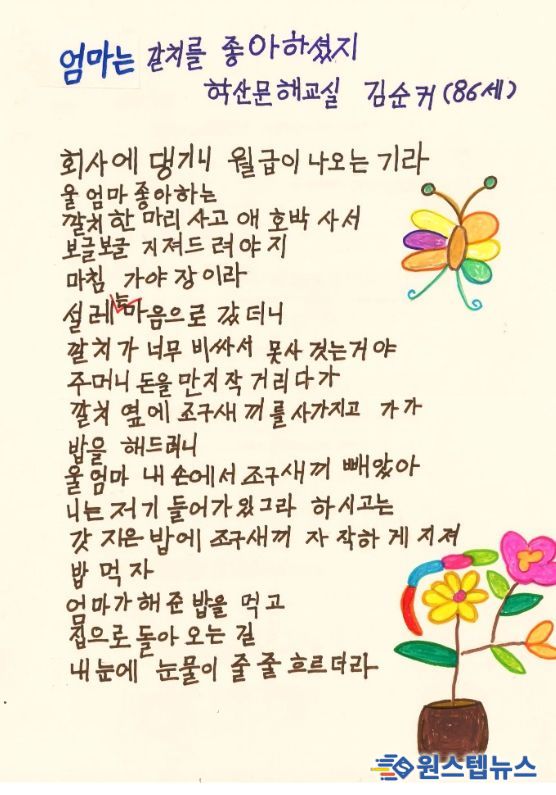 엄마는 갈치를 좋아하셨지
학산문해교실 김순커 (86세)
회사에 댕기니 월급이 나오는 기라
울 엄마 좋아하는
깔치 한 마리 사고 애 호박 사서
보글보글 지져드려야지
마침 가야 장이라
설레는 마음으로 갔더니
깔치가 너무 비싸서 못사 것는거야
주머니 돈을 만지작 거리다가
깔치 옆에 조구새끼를 사가지고 가가
밥을 해드려니
울 엄마 내 손에서 조구새끼 빼았아
니는 저기 들어가 있그라 하시고는
갓 지은 밥에 조구새끼 자작하게 지져
밥 먹자
엄마가 해준 밥을 먹고
집으로 돌아 오는 길
내 눈에 눈물이 줄줄 흐르더라
원스텝뉴스